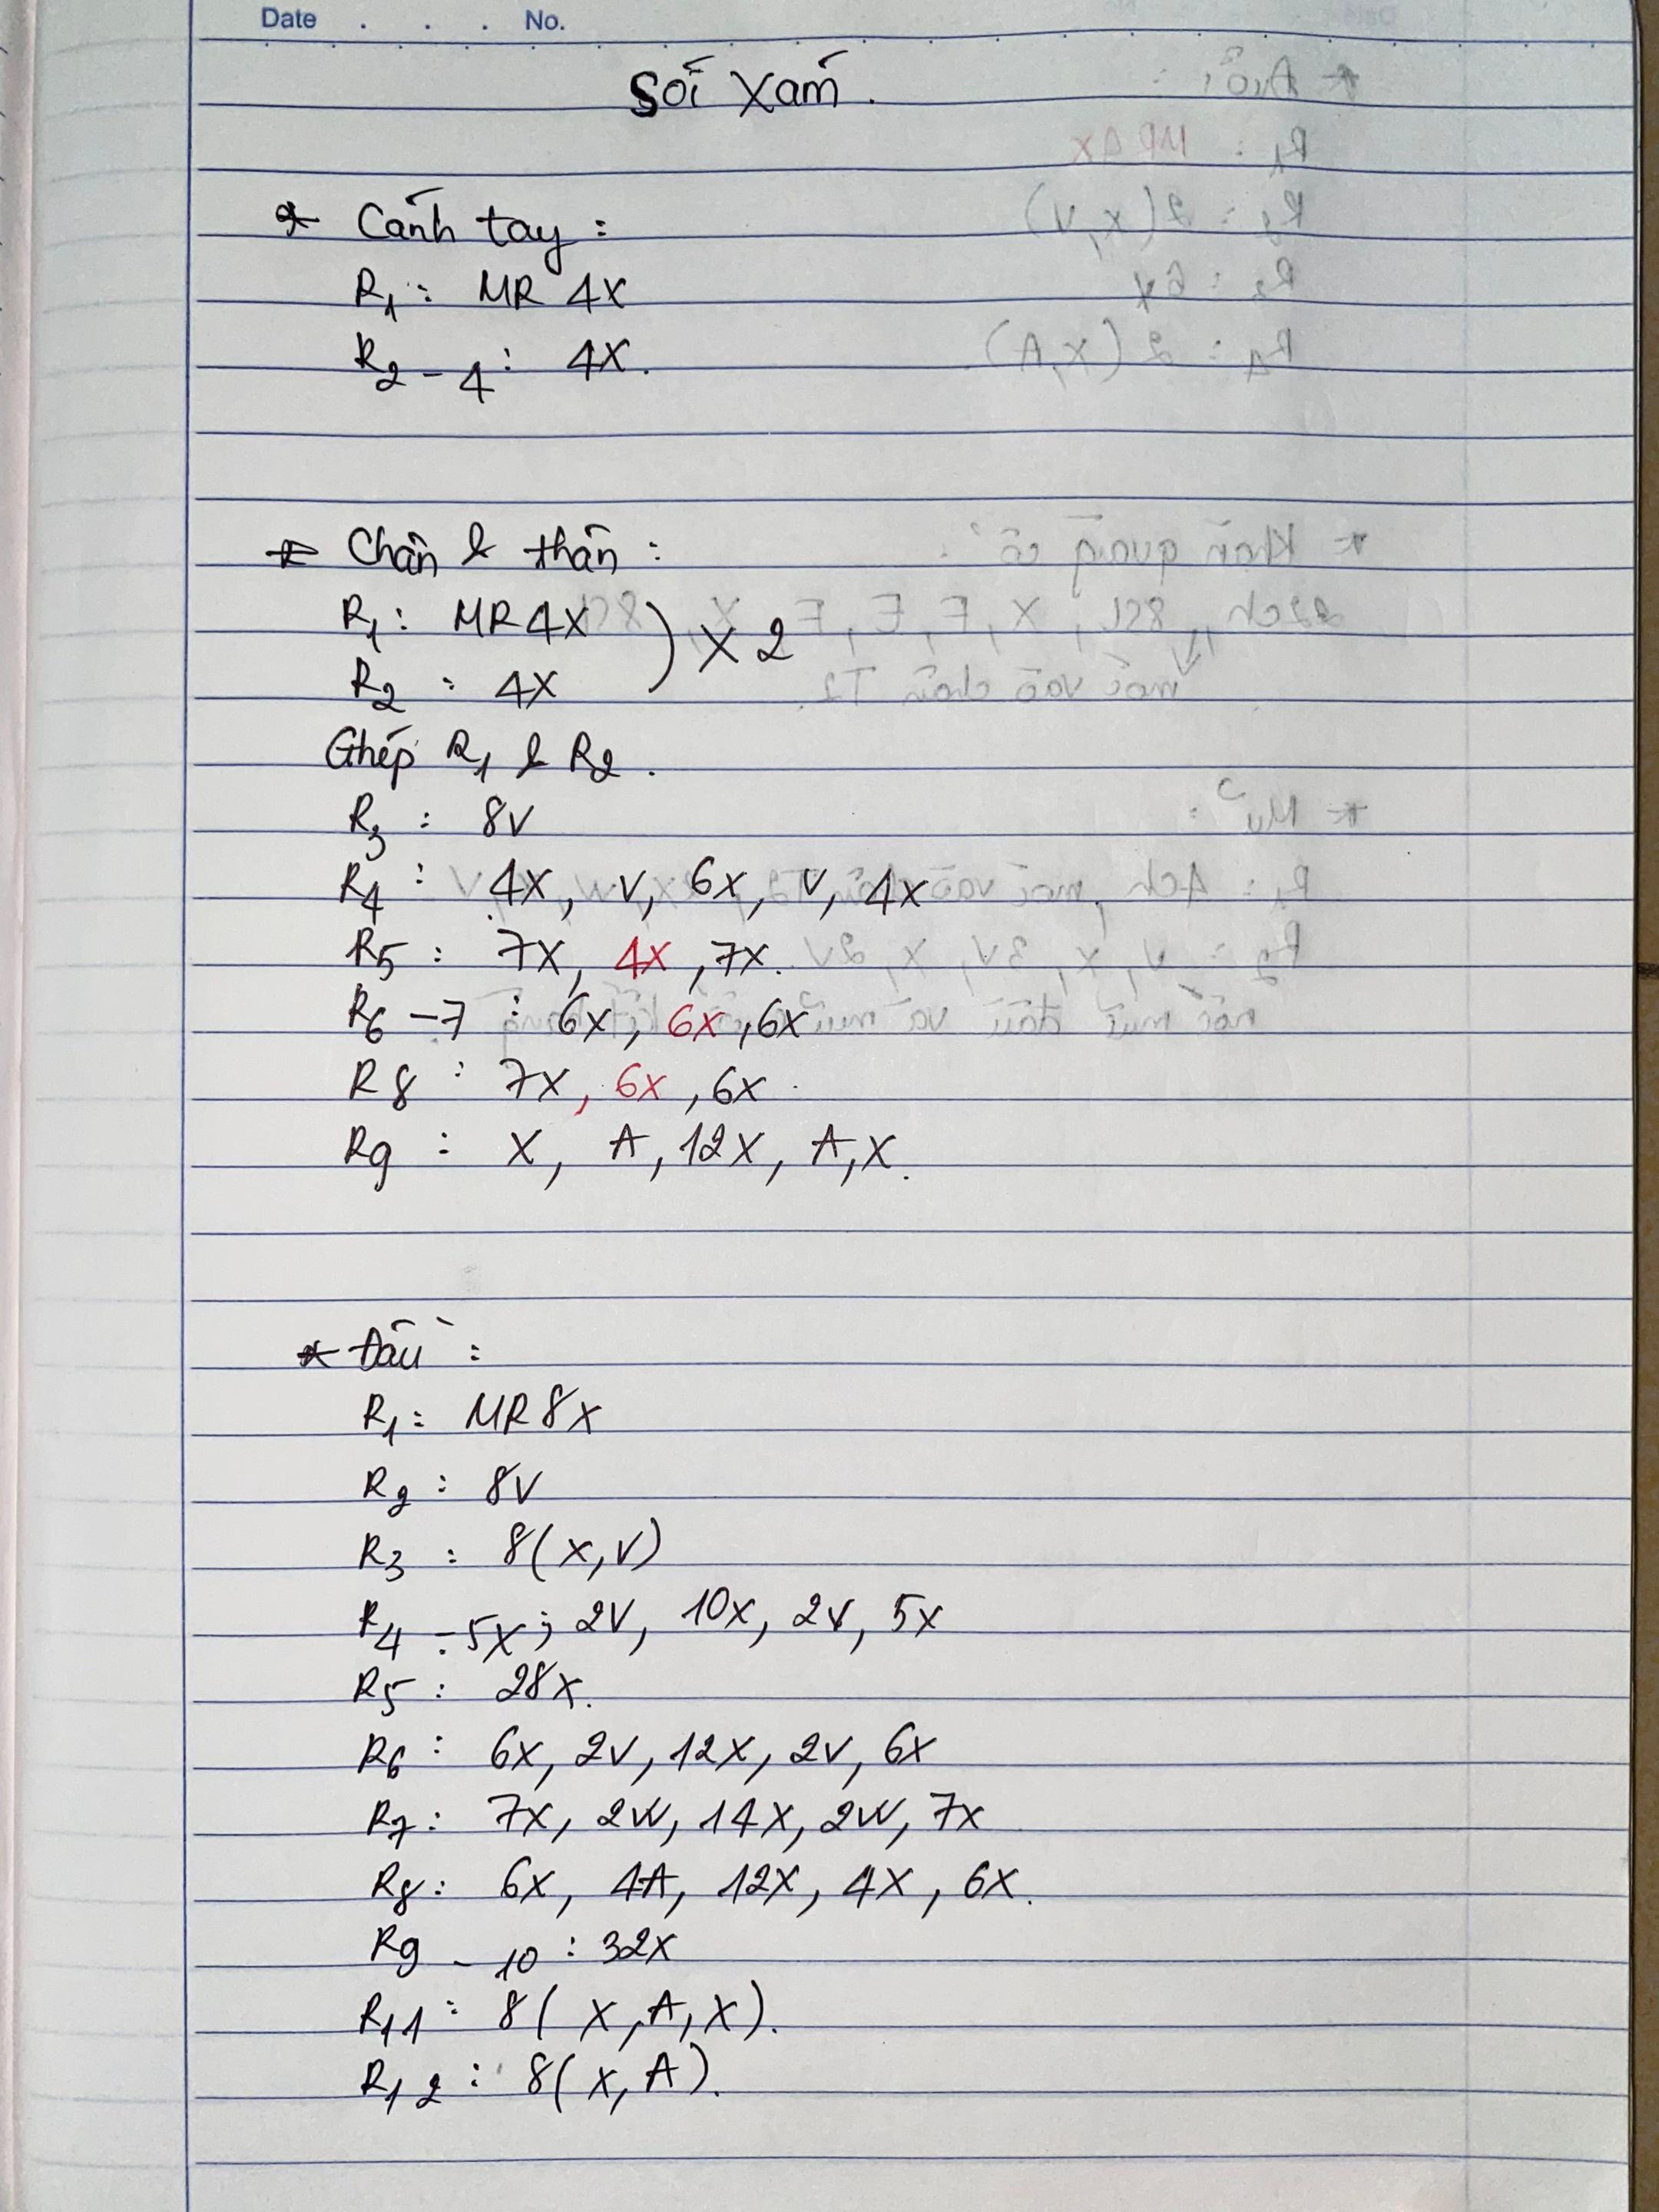 Date . . . No.
Sói Xám.
* Cánh tay :
R1 : MR 4X
R2 - 4 : 4X.
* Chân & thân :
R1 : MR 4X ) X 2
R2 : 4X
Ghép R1 & R2.
R3 : 8V
R4 : 4X, V, 6X, V, 4X
R5 : 7X, 4X, 7X.
R6 - 7 : 6X, 6X, 6X
R8 : 7X, 6X, 6X
R9 : X, A, 12X, A, X.
* Đầu :
R1 : MR 8X
R2 : 8V
R3 : 8(X, V)
R4 : 5X ; 2V, 10X, 2V, 5X
R5 : 28X.
R6 : 6X, 2V, 12X, 2V, 6X
R7 : 7X, 2W, 14X, 2W, 7X
R8 : 6X, 4A, 12X, 4X, 6X.
R9 - 10 : 32X
R11 : 8( X, A, X).
R12 : 8( X, A).